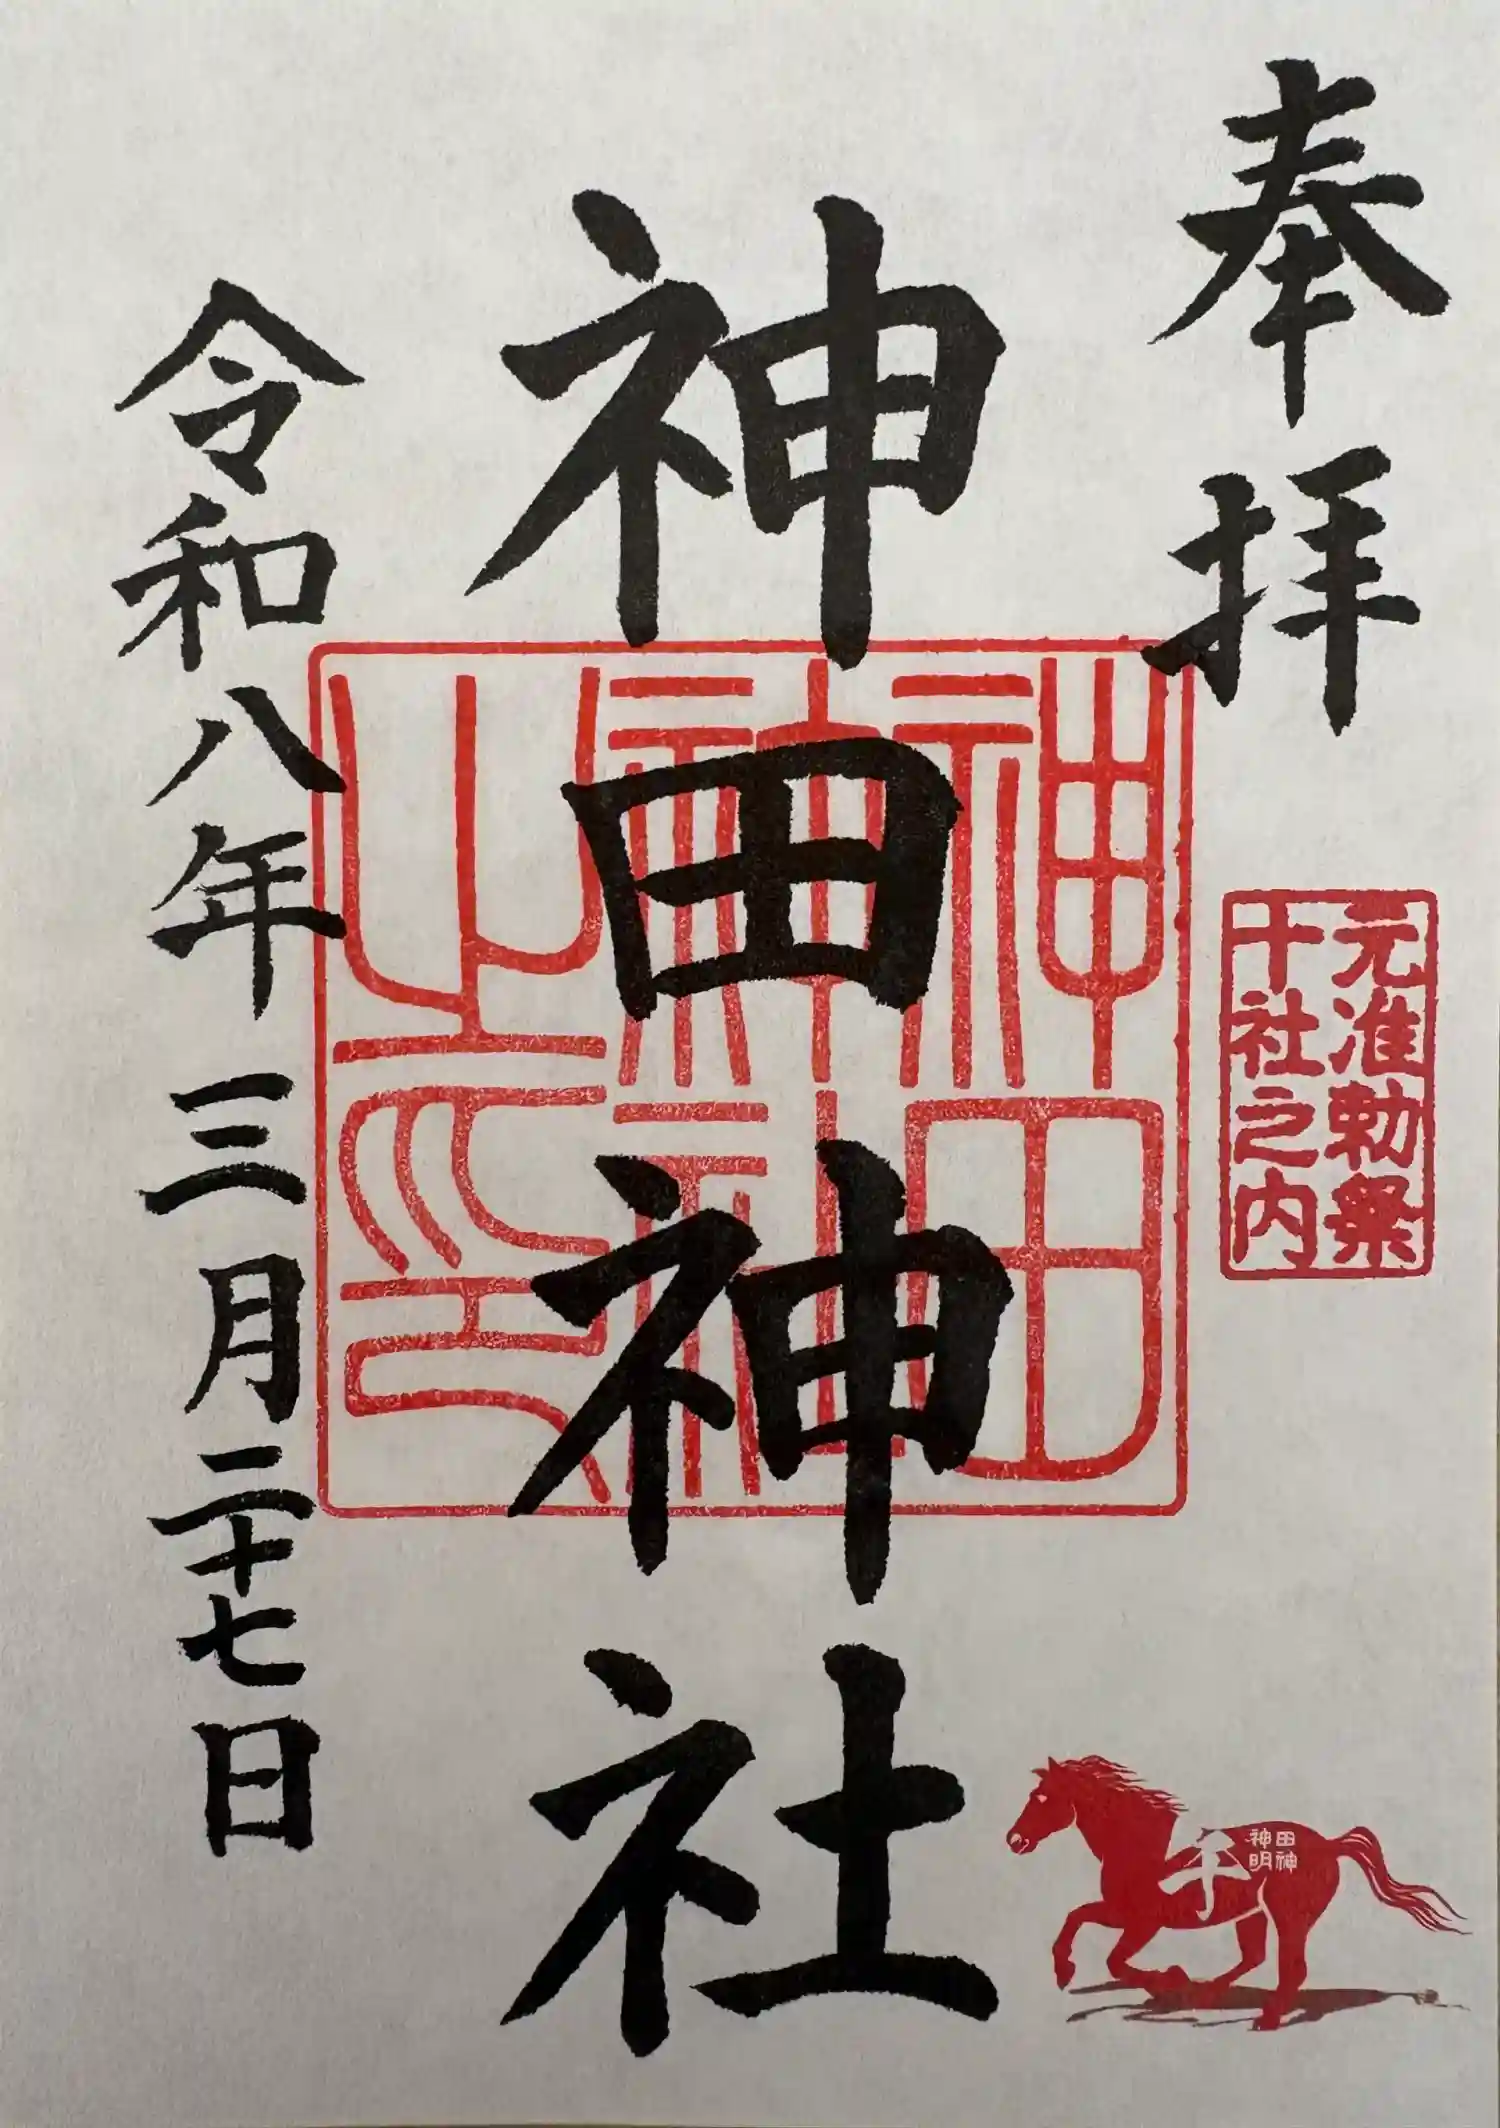 奉拝
元准勅祭
十社之内
神田神社
神田
神社
之印
令和八年 三月二十七日
午
神田
明神